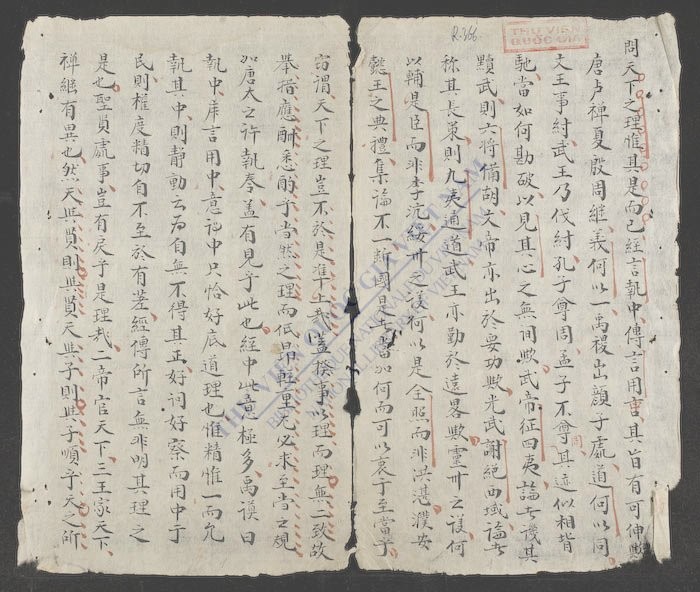 問天下之理惟其是而已經言執中傳言用中其旨有可伸歟
唐虞禪夏殷周繼義何以一禹稷出顏子處道何以同
文王事紂武王乃伐紂孔子尊周孟子不尊周其迹似相背
馳當如何勘破以見其心之無間歟武帝征四夷論者譏其
黷武則六將備胡文帝亦出於要功歟光武謝絕西域論者
稱其長策則九夷通道武王亦勤於遠畧歟靈州之議何
以輔是臣而非李沆綏州之議何以是全照而非洪湛濮安
懿王之典禮集論不一斯國是者當如何而可以衷于至當乎
竊謂天下之理豈不於是準上哉蓋俟事以理而理無二致故
舉措應酬悉酌乎當然之理而低昂輕重尤必求至當之規
如唐大之許執奉蓋有見乎此也經中此意極多禹謨曰
執中庠言用中意謂中只恰好底道理也惟精惟一而允
執其中則靜動云為自無不得其正好問好察而用中于
民則權度精切自不至於有差經傳所言無非明其理之
是也聖賢處事豈有戾乎是理哉二帝官天下三王家天下
禪繼有異也然天與賢則與賢天與子則與子順乎天之所
R.366
THƯ VIỆN
QUỐC GIA